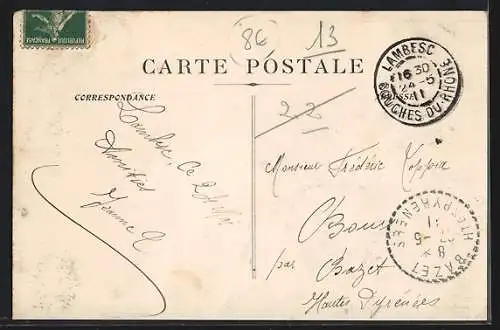 REPUBLIQUE FRANÇAISE
86
13
CARTE POSTALE
LAMBESC
16 30
24 - 5
11
BOUCHES DU RHONE
CORRESPONDANCE
22
Lambesc, Ce 24
Amitiés
Monsieur Frédéric
par Bazet
Hautes Pyrénées
BAZET
8
-5
11
HTES PYRENEES